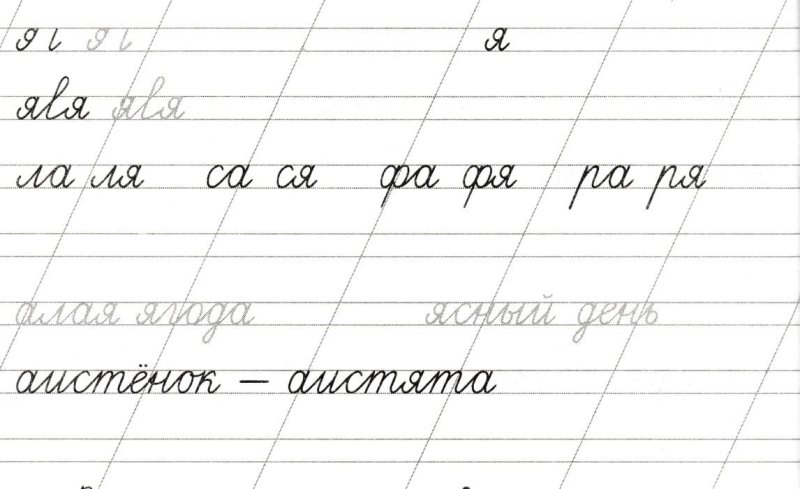 я
яɩя яɩя
ла ля са ся фа фя ра ря
алая ягода ясный день
аистёнок — аистята